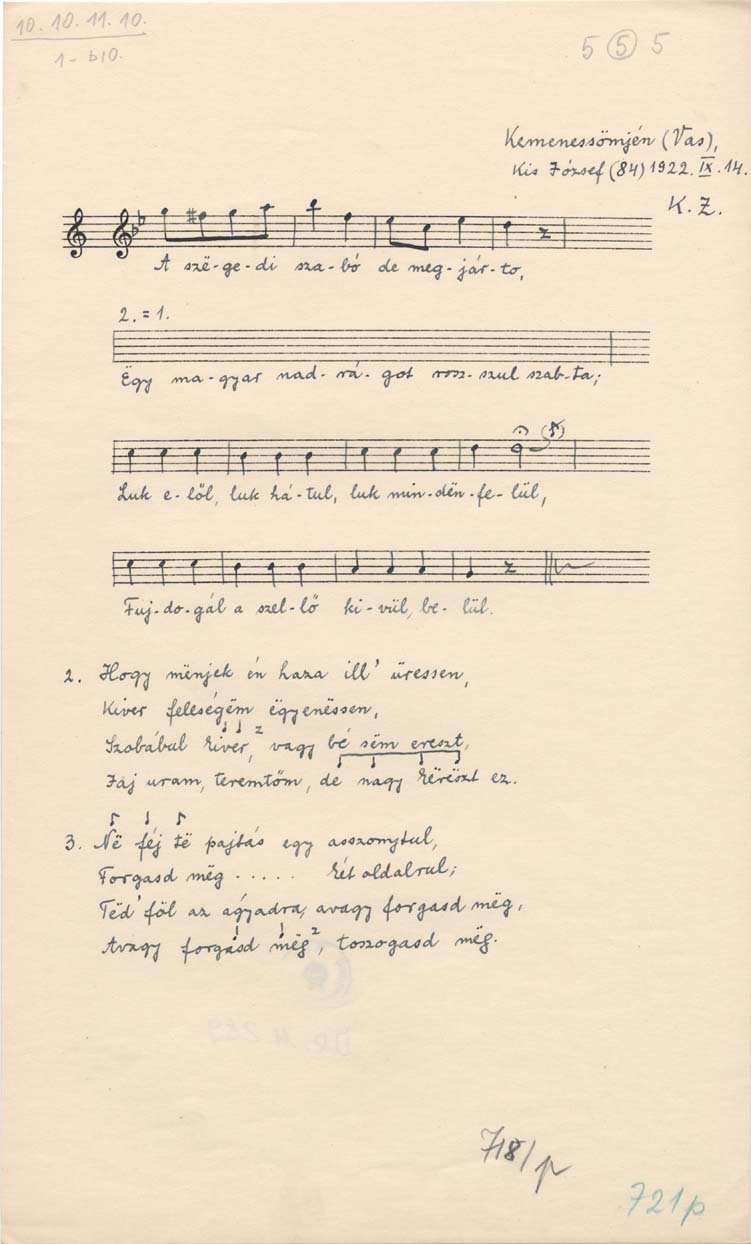 10. 10. 11. 10.
1 - b10.
5 5 5
Kemenessömjén (Vas),
Kis József (84) 1922. IX. 14.
K. Z.
A szë-ge-di sza-bó de meg-jár-to,
2. = 1.
Ëgy ma-gyar nad-rá-got rosz-szul szab-ta;
Luk e-lől, luk há-tul, luk min-dën-fe-lül,
Fuj-do-gál a szel-lő ki-vül, be-lül.
2. Hogy mënjek én haza ill' üressen,
Kiver feleségëm ëgyenëssen,
Szobábul kiver, vagy bé sëm ereszt,
Jaj uram, teremtőm, de nagy kërëszt ez.
3. Në féj të pajtás egy asszonytul,
Forgasd mëg . . . . . két oldalrul;
Tëd' föl az ágyadra, avagy forgasd mëg,
Avagy forgasd mëg, toszogasd mëg.
718/p
721p